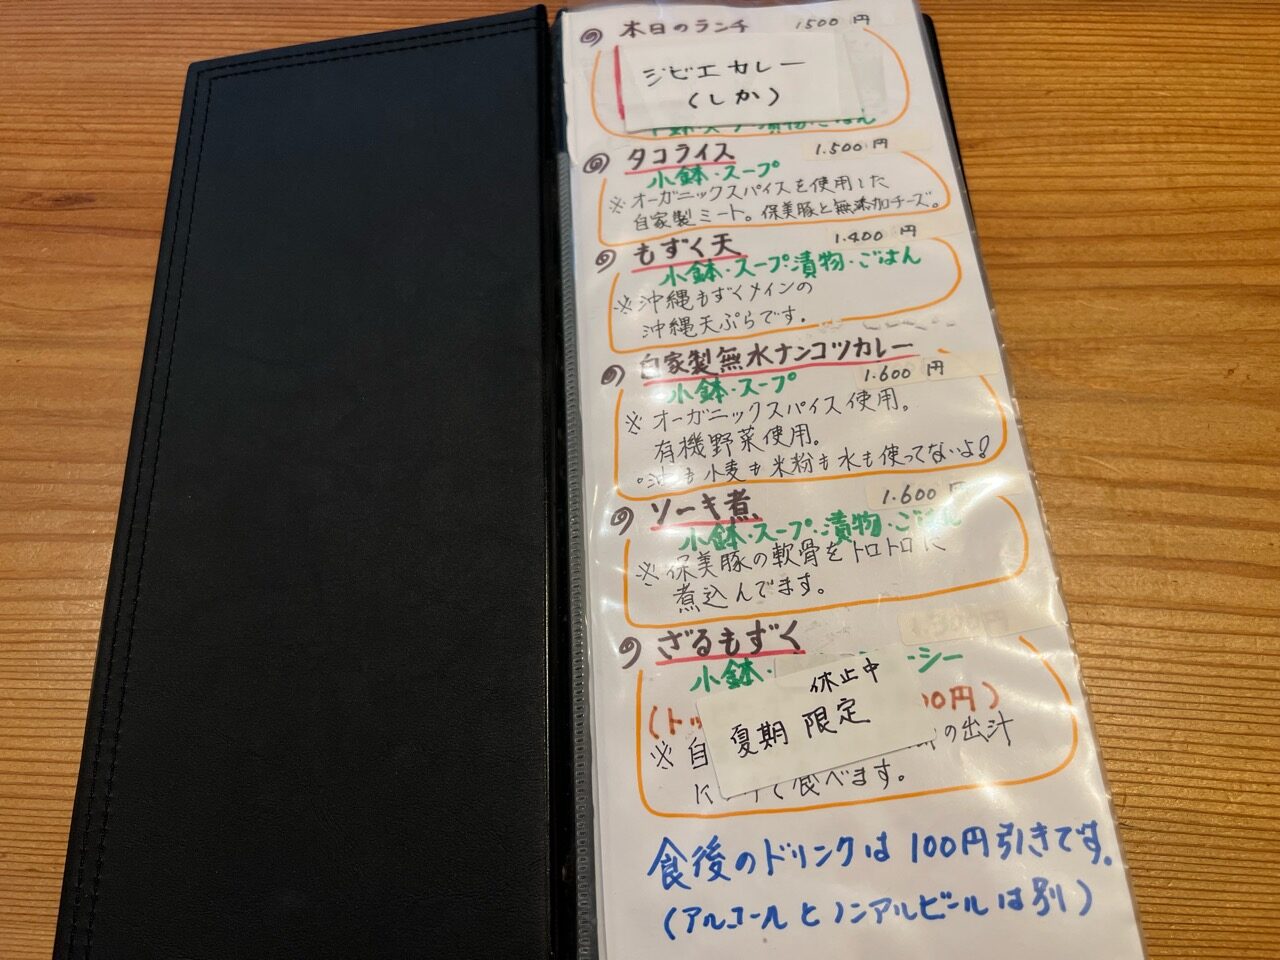 本日のランチ 1500円
ジビエカレー
(しか)
タコライス 1.500円
小鉢・スープ
※オーガニックスパイスを使用した
自家製ミート。保美豚と無添加チーズ。
もずく天 1.400円
小鉢・スープ・漬物・ごはん
※沖縄もずくメインの
沖縄天ぷらです。
自家製無水ナンコツカレー
小鉢・スープ 1.600円
※オーガニックスパイス使用。
有機野菜使用。
。油も小麦も米粉も水も使ってないよ!
ソーキ煮 1.600円
小鉢・スープ・漬物・ごはん
※保美豚の軟骨をトロトロに
煮込んでます。
ざるもずく
小鉢・ーシー
休止中
夏期限定
(トッ 00円)
※自 の出汁
て食べます。
食後のドリンクは100円引きです。
(アルコールとノンアルビールは別)